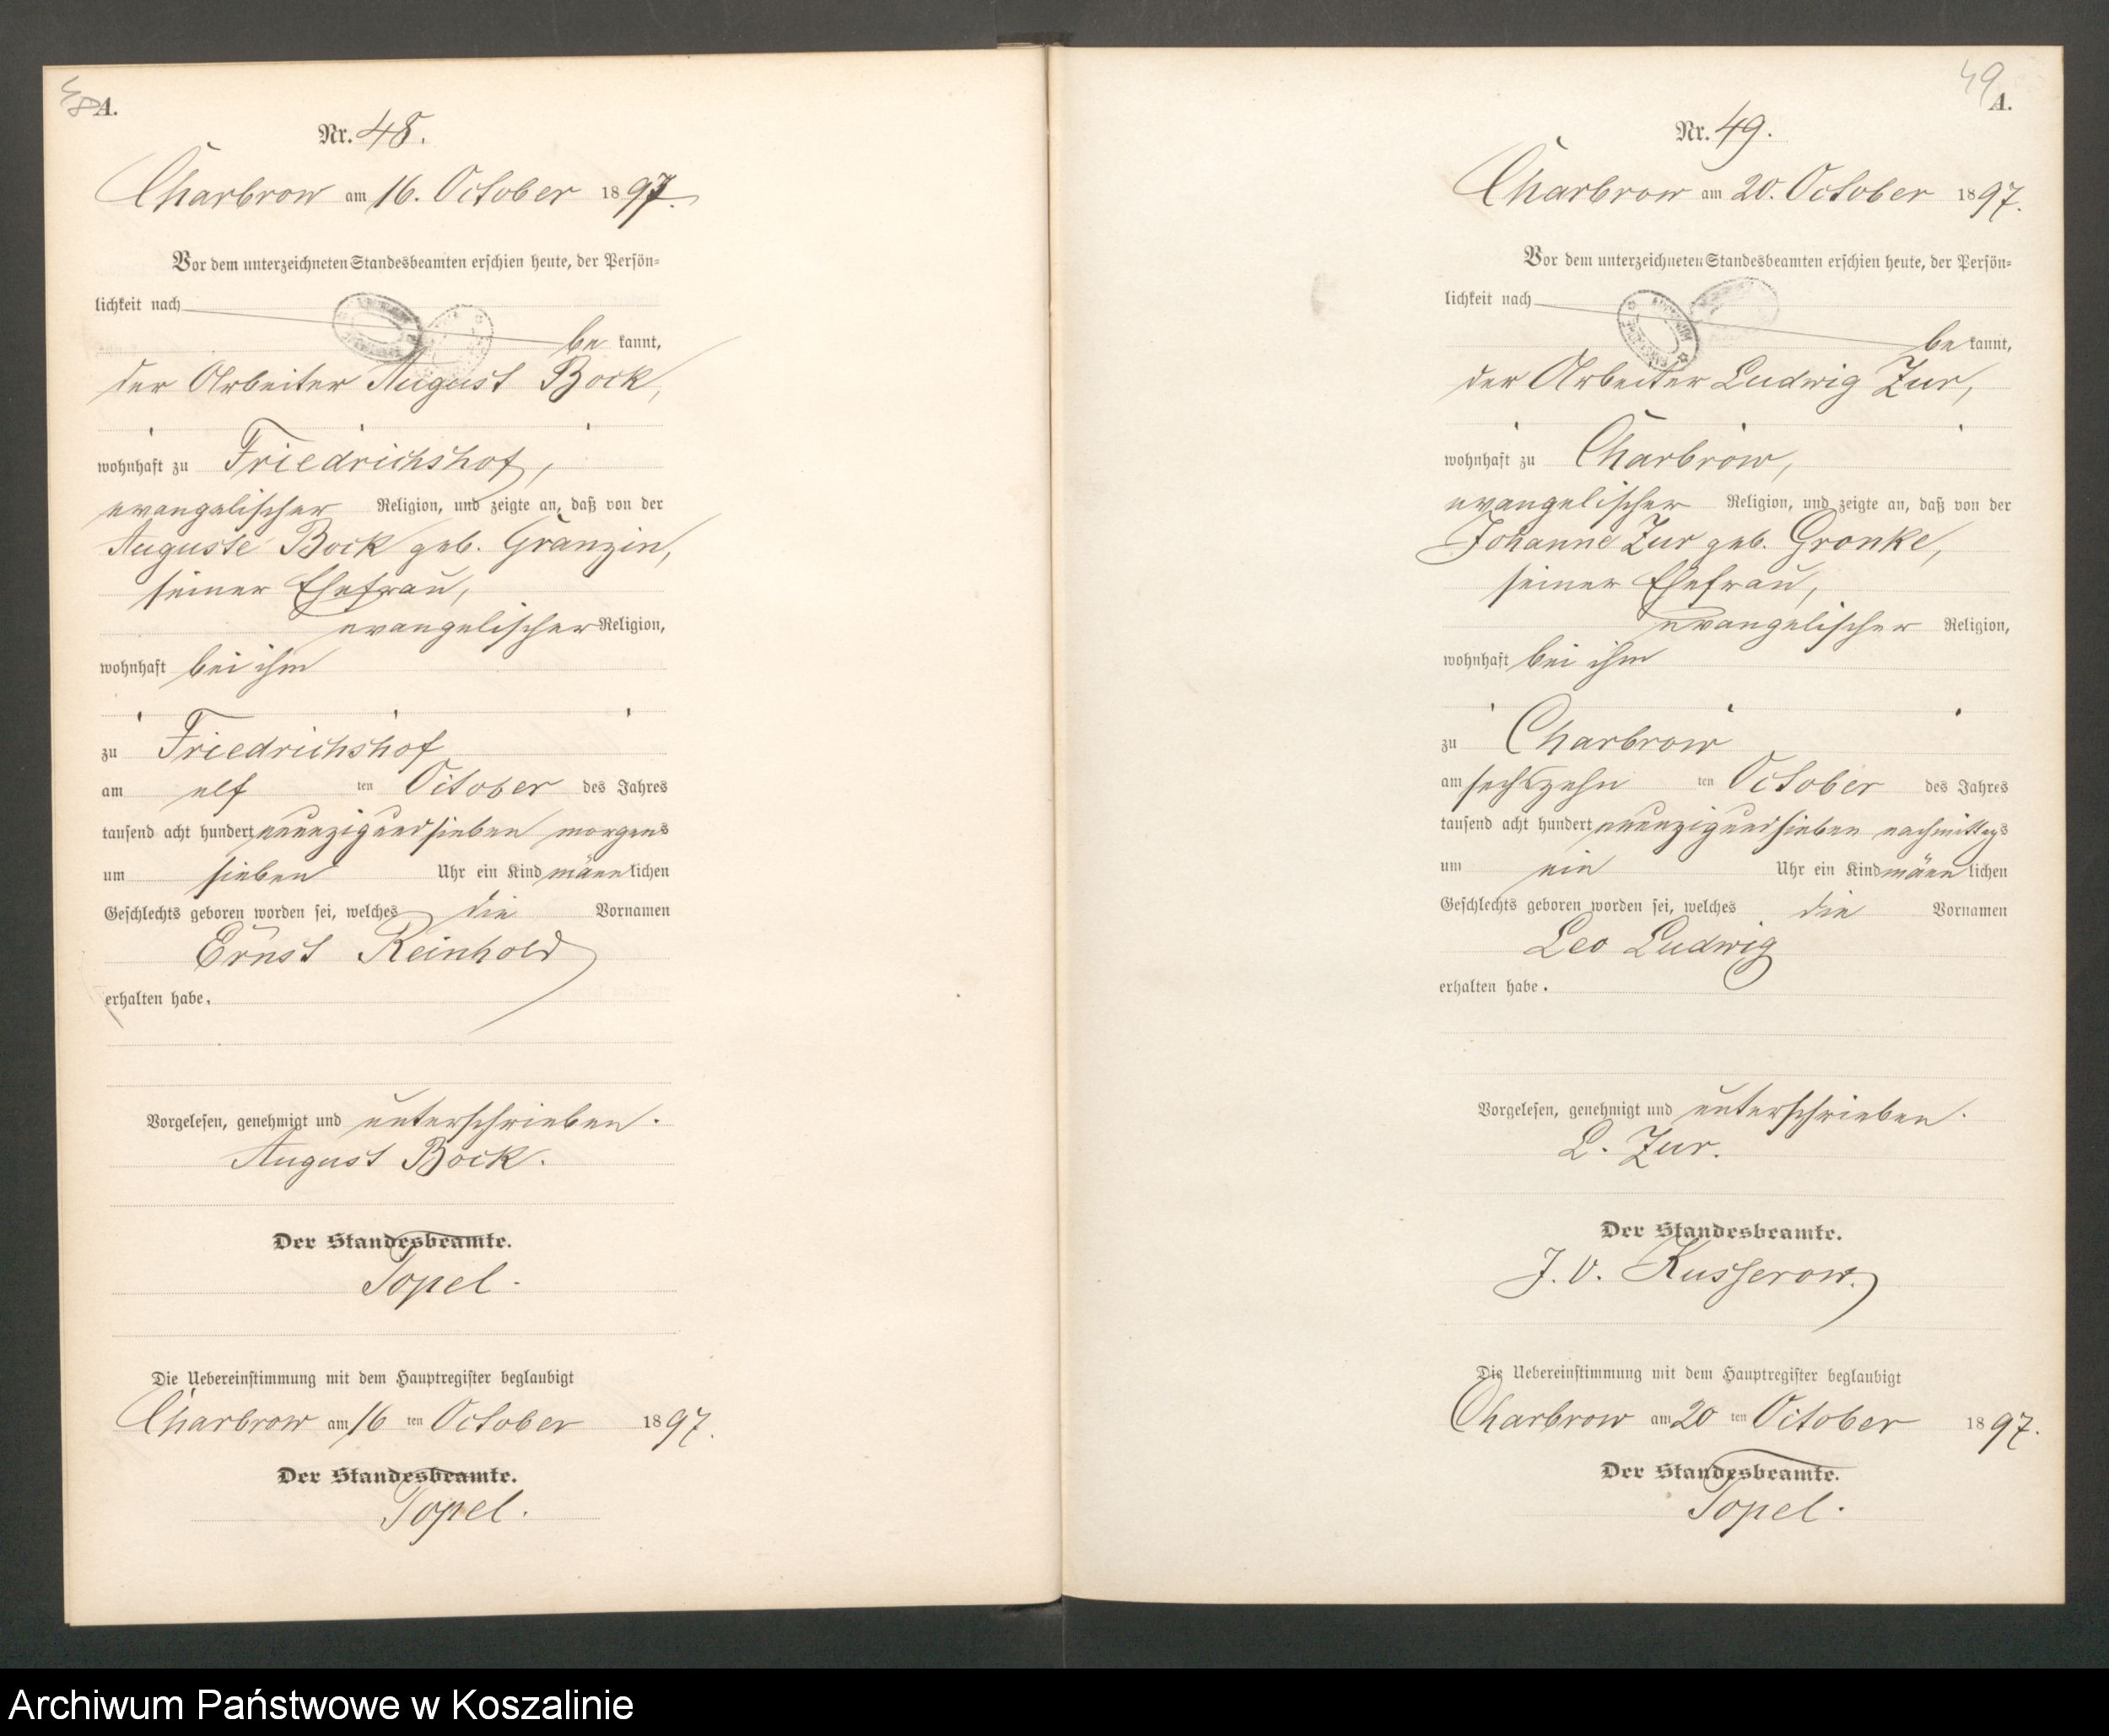 48
A.
Nr. 48.
Charbrow am 16. October 1897.
Vor dem unterzeichneten Standesbeamten erschien heute, der Persön-
lichkeit nach
be kannt,
der Arbeiter August Bock,
wohnhaft zu Friedrichshof,
evangelischer Religion, und zeigte an, daß von der
Auguste Bock geb. Granzin,
seiner Ehefrau,
evangelischer Religion,
wohnhaft bei ihm
zu Friedrichshof
am elf ten October des Jahres
tausend acht hundert neunzig und sieben morgens
um sieben Uhr ein Kind männlichen
Geschlechts geboren worden sei, welches die Vornamen
Ernst Reinhold
erhalten habe.
Vorgelesen, genehmigt und unterschrieben.
August Bock.
Der Standesbeamte.
Topel.
Die Uebereinstimmung mit dem Hauptregister beglaubigt
Charbrow am 16 ten October 1897.
Der Standesbeamte.
Topel.
49
A.
Nr. 49.
Charbrow am 20. October 1897.
Vor dem unterzeichneten Standesbeamten erschien heute, der Persön-
lichkeit nach
be kannt,
der Arbeiter Ludwig Zur,
wohnhaft zu Charbrow,
evangelischer Religion, und zeigte an, daß von der
Johanne Zur geb. Gronke,
seiner Ehefrau,
evangelischer Religion,
wohnhaft bei ihm
zu Charbrow
am sechszehn ten October des Jahres
tausend acht hundert neunzig und sieben nachmittags
um ein Uhr ein Kind männlichen
Geschlechts geboren worden sei, welches die Vornamen
Leo Ludwig
erhalten habe.
Vorgelesen, genehmigt und unterschrieben.
L. Zur.
Der Standesbeamte.
J. V. Kusserow.
Die Uebereinstimmung mit dem Hauptregister beglaubigt
Charbrow am 20 ten October 1897.
Der Standesbeamte.
Topel.
Archiwum Państwowe w Koszalinie